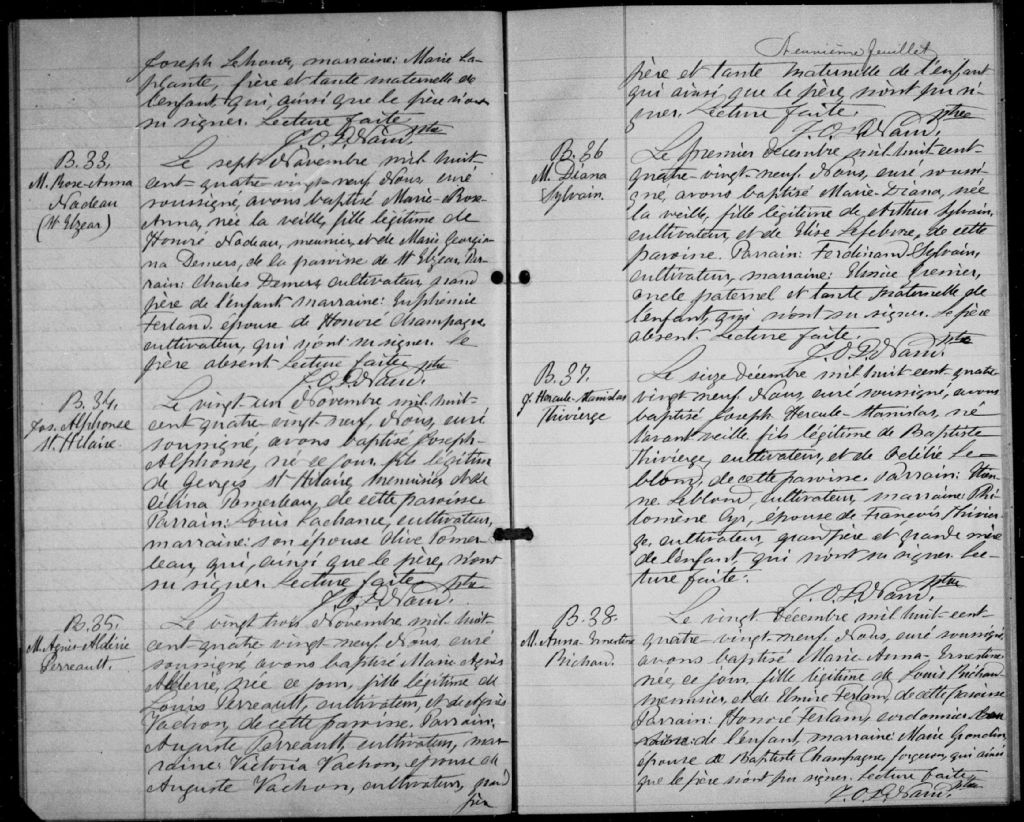 Joseph Lehoux, marraine: Marie La-
plante, frère et tante maternelle de
l'enfant qui, ainsi que le père n'ont
su signer. Lecture faite.
J. O. P. Naud. ptre
B. 33.
M. Rose-Anna
Nadeau
(St Elzear)
Le sept Novembre mil huit-
cent-quatre-vingt-neuf, Nous, curé
soussigné, avons baptisé Marie-Rose-
Anna, née la veille, fille légitime de
Honoré Nadeau, meunier, et de Marie Georgia-
na Demers, de la paroisse de St Elzear. Par-
rain: Charles Demers, cultivateur, grand
père de l'enfant marraine: Euphémie
Ferland, épouse de Honoré Champagne,
cultivateur, qui n'ont su signer. Le
père absent. Lecture faite.
J. O. P. Naud. ptre
B. 34.
Jos. Alphonse
St. Hilaire.
Le vingt-un Novembre mil huit-
cent quatre-vingt neuf, Nous, curé
soussigné, avons baptisé Joseph-
Alphonse, né ce jour, fils légitime
de Georges St Hilaire, menuisier, et de
Célina Pomerleau, de cette paroisse.
Parrain: Louis Lachance, cultivateur,
marraine: son épouse Olive Pomer-
leau, qui, ainsi que le père, n'ont
su signer. Lecture faite.
J. O. P. Naud. ptre
B. 35.
M. Agnès-Aldérie
Perreault.
Le vingt trois Novembre mil huit-
cent-quatre-vingt-neuf, Nous curé
soussigné avons baptisé Marie Agnès
Aldérie, née ce jour, fille légitime de
Louis Perreault, cultivateur, et de Agnès
Vachon, de cette paroisse. Parrain:
Auguste Perreault, cultivateur, mar-
raine: Victoria Vachon, épouse de
Auguste Vachon, cultivateur, grand
père
Neuvième feuillet
père et tante maternelle de l'enfant
qui ainsi que le père, n'ont pu si-
gner. Lecture faite.
J. O. P. Naud. ptre
B. 36
M. Diana
Sylvain.
Le premier décembre mil huit cent-
quatre-vingt-neuf, Nous, curé soussi-
gné, avons baptisé Marie-Diana, née
la veille, fille légitime de Arthur Sylvain,
cultivateur, et de Elise Lefebvre, de cette
paroisse. Parrain: Ferdinand Sylvain,
cultivateur, marraine: Elmire Grenier,
oncle paternel et tante maternelle de
l'enfant, qui n'ont su signer. Le père
absent. Lecture faite.
J. O. P. Naud. ptre
B. 37.
J. Hercule-Stanislas
Thivierge
Le seize décembre mil huit cent quatre
vingt neuf, Nous, curé soussigné, avons
baptisé Joseph Hercule-Stanislas, né
l'avant veille, fils légitime de Baptiste
Thivierge, cultivateur, et de Odélie Le-
blond, de cette paroisse. Parrain: Etien-
ne Leblond, cultivateur, marraine: Phi-
lomène Cyr, épouse de François Thivier-
ge, cultivateur, grand père et grande mère
de l'enfant, qui n'ont su signer. Lec-
ture faite.
J. O. P. Naud. ptre
B. 38.
M. Anna-Ernestine
Bichard.
Le vingt Décembre mil huit-cent
quatre-vingt-neuf, Nous, curé soussigné,
avons baptisé Marie-Anna-Ernestine
née, ce jour, fille légitime de Louis Bichard
menuisier, et de Elmire Ferland, de cette paroisse
Parrain: Honoré Ferland, cordonnier
de l'enfant, marraine: Marie Grondin,
épouse de Baptiste Champagne, forgeron, qui ainsi
que le père n'ont pu signer. Lecture faite.
J. O. P. Naud. ptre